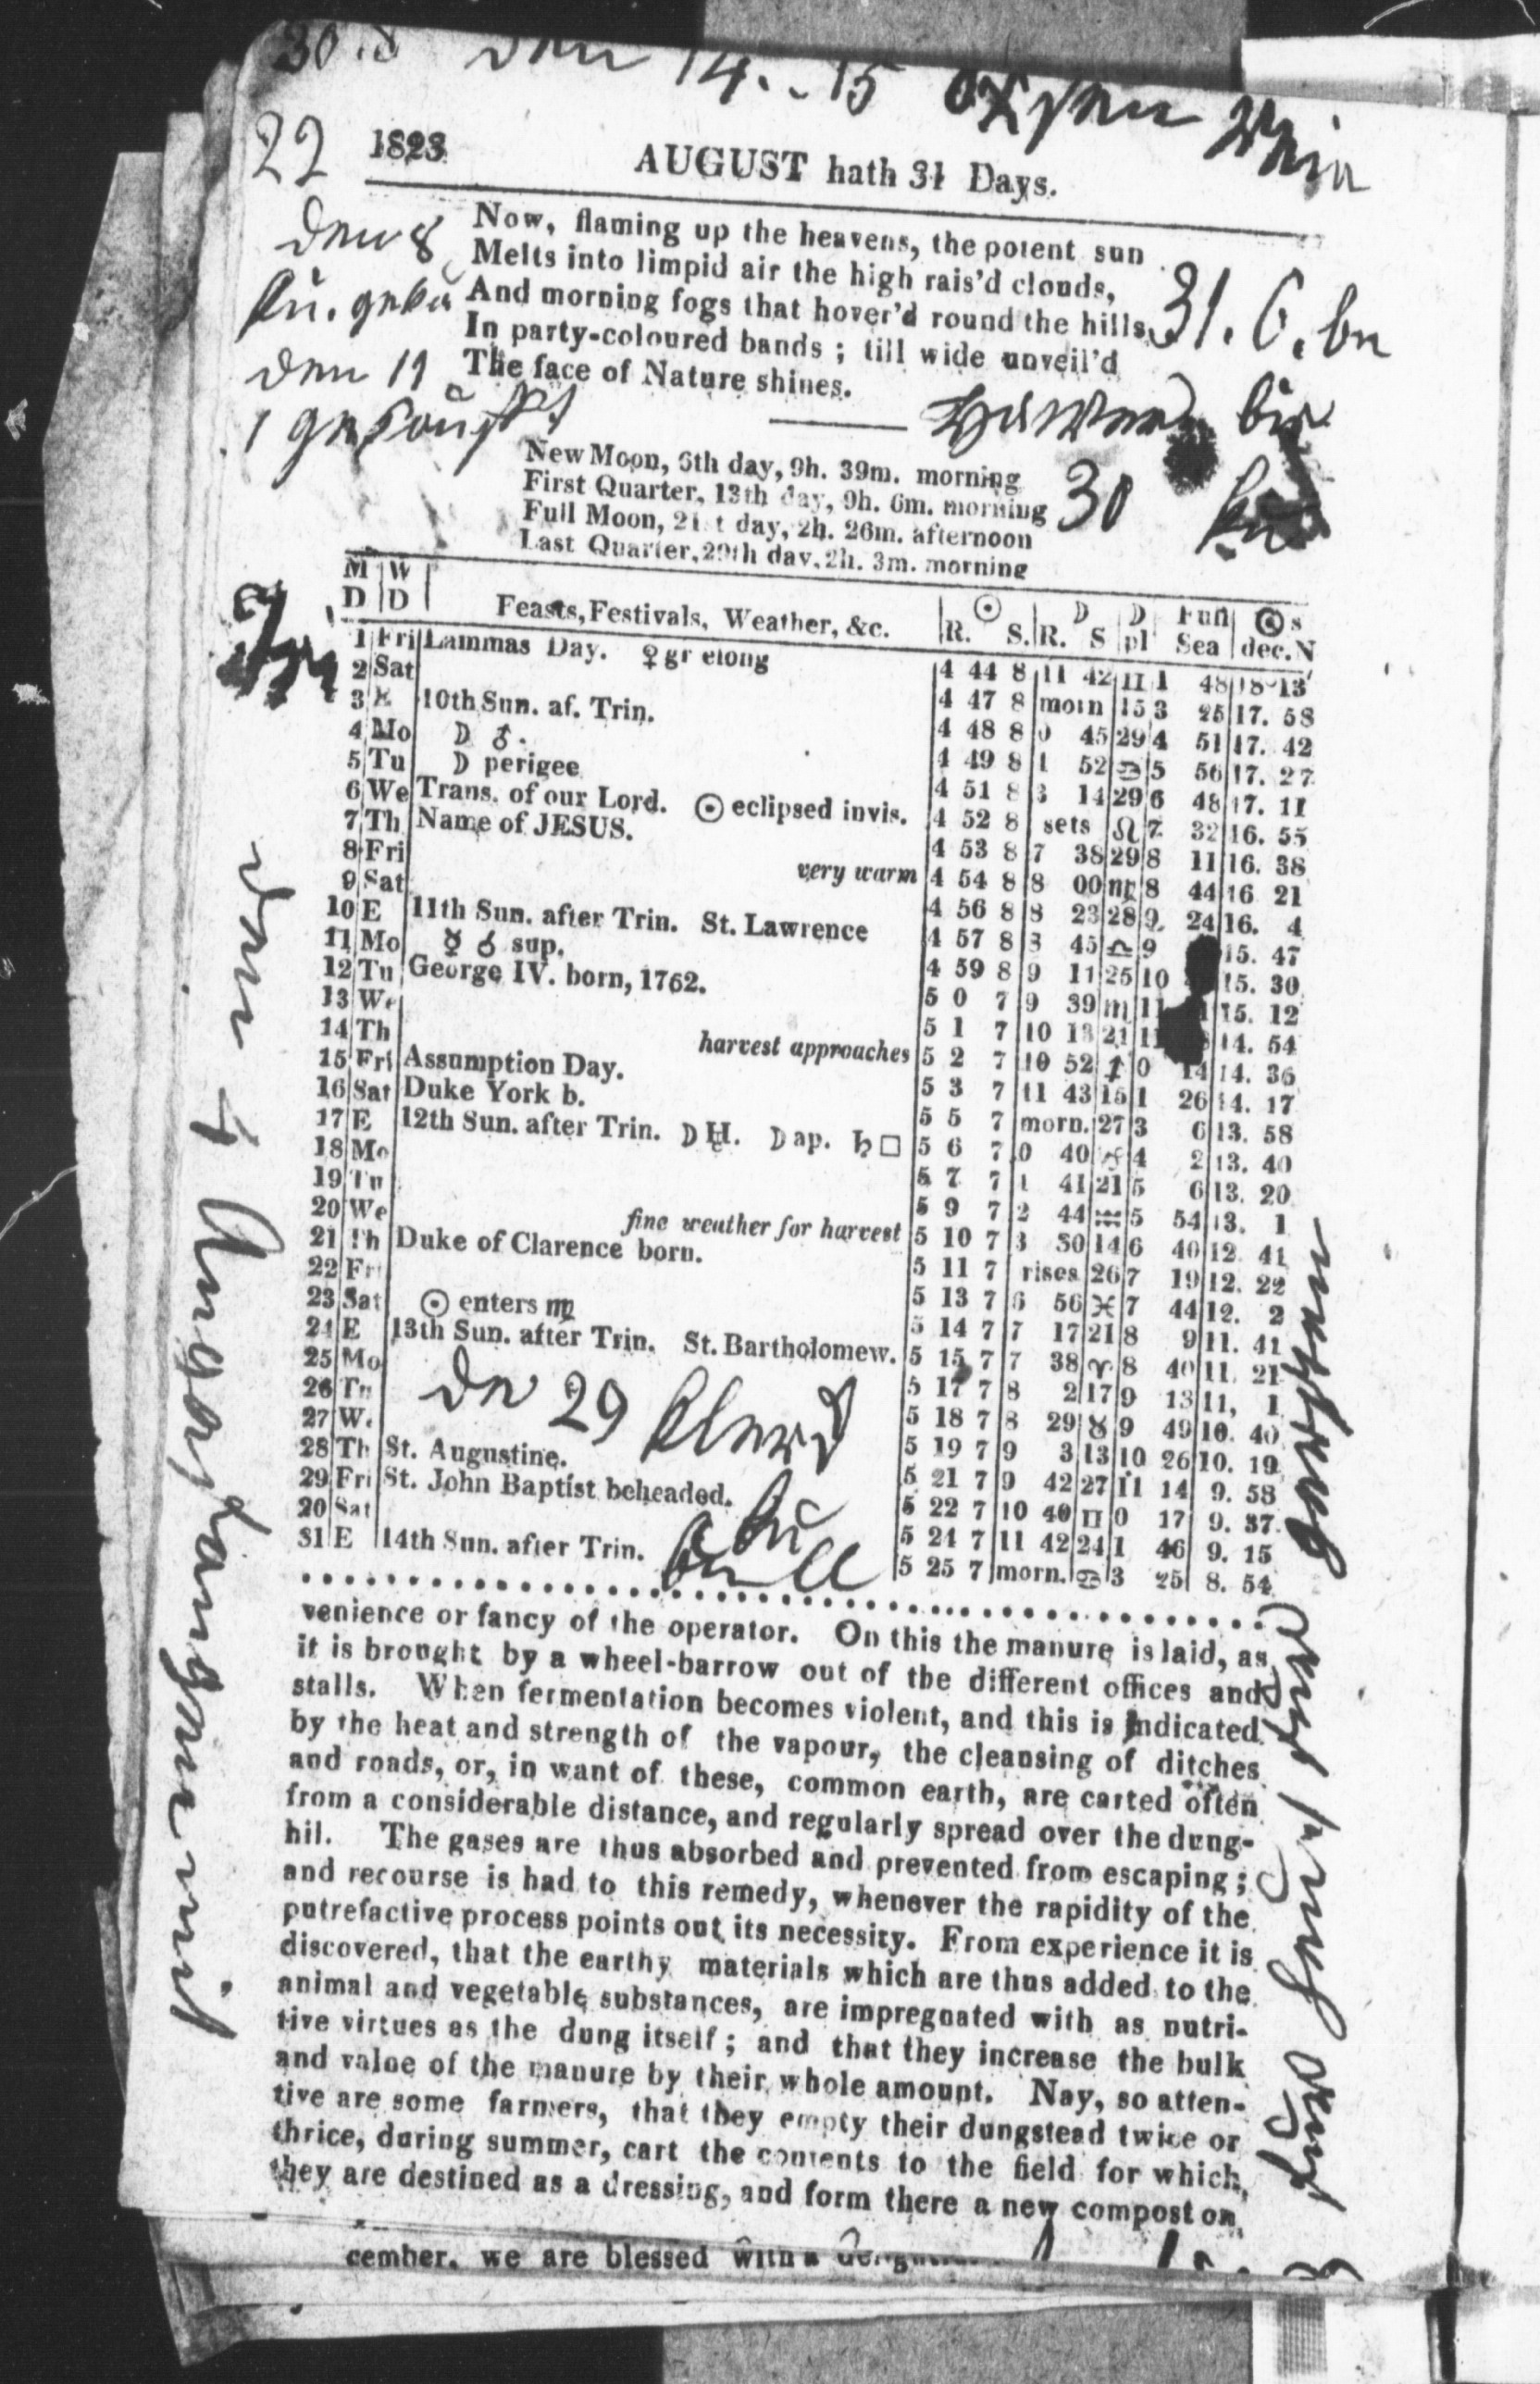 den 14. 15
22 1823 AUGUST hath 31 Days.
den 8
den 11
Now, flaming up the heavens, the potent sun
Melts into limpid air the high rais'd clouds,
And morning fogs that hover'd round the hills,
In party-coloured bands ; till wide unveil'd
The face of Nature shines.
31. 6.
New Moon, 6th day, 9h. 39m. morning
First Quarter, 13th day, 9h. 6m. morning
Full Moon, 21st day, 2h. 26m. afternoon
Last Quarter, 29th day, 2h. 3m. morning
30
M D W D Feasts, Festivals, Weather, &c. ☉ R. S. ☽ R. S ☽ pl Full Sea ☉s dec. N
1 Fri Lammas Day. ♀ gr elong 4 44 8 11 42 ♊ 1 48 18 13
2 Sat 4 47 8 morn 15 3 25 17. 58
3 E 10th Sun. af. Trin. 4 48 8 0 45 29 4 51 17. 42
4 Mo ☽ ♂. 4 49 8 1 52 ♋ 5 56 17. 27
5 Tu ☽ perigee 4 51 8 3 14 29 6 48 17. 11
6 We Trans. of our Lord. ☉ eclipsed invis. 4 52 8 sets ♌ 7 32 16. 55
7 Th Name of JESUS. 4 53 8 7 38 29 8 11 16. 38
8 Fri very warm 4 54 8 8 00 ♍ 8 44 16 21
9 Sat 4 56 8 8 23 28 9 24 16. 4
10 E 11th Sun. after Trin. St. Lawrence 4 57 8 8 45 ♎ 9 15. 47
11 Mo ☿ ☌ sup. 4 59 8 9 11 25 10 15. 30
12 Tu George IV. born, 1762. 5 0 7 9 39 ♏ 11 15. 12
13 We 5 1 7 10 13 21 11 14. 54
14 Th harvest approaches 5 2 7 10 52 ♐ 0 14 14. 36
15 Fri Assumption Day. 5 3 7 11 43 15 1 26 14. 17
16 Sat Duke York b. 5 5 7 morn. 27 3 6 13. 58
17 E 12th Sun. after Trin. ☽ ♅. ☽ ap. ♄ □ 5 6 7 0 40 ♑ 4 2 13. 40
18 Mo 5 7 7 1 41 21 5 6 13. 20
19 Tu 5 9 7 2 44 ♒ 5 54 13. 1
20 We fine weather for harvest 5 10 7 3 50 14 6 40 12. 41
21 Th Duke of Clarence born. 5 11 7 rises 26 7 19 12. 22
22 Fri 5 13 7 6 56 ♓ 7 44 12. 2
23 Sat ☉ enters ♍ 5 14 7 7 17 21 8 9 11. 41
24 E 13th Sun. after Trin. St. Bartholomew. 5 15 7 7 38 ♈ 8 40 11. 21
25 Mo 5 17 7 8 2 17 9 13 11, 1
26 Tu 5 18 7 8 29 ♉ 9 49 10. 40
27 W. 5 19 7 9 3 13 10 26 10. 19
28 Th St. Augustine. 5 21 7 9 42 27 11 14 9. 58
29 Fri St. John Baptist beheaded. 5 22 7 10 40 ♊ 0 17 9. 37.
20 Sat 5 24 7 11 42 24 1 46 9. 15
31 E 14th Sun. after Trin. 5 25 7 morn. ♋ 3 25 8. 54
29
den 4
venience or fancy of the operator. On this the manure is laid, as
it is brought by a wheel-barrow out of the different offices and
stalls. When fermentation becomes violent, and this is indicated
by the heat and strength of the vapour, the cleansing of ditches
and roads, or, in want of these, common earth, are carted often
from a considerable distance, and regularly spread over the dung-
hil. The gases are thus absorbed and prevented from escaping ;
and recourse is had to this remedy, whenever the rapidity of the
putrefactive process points out its necessity. From experience it is
discovered, that the earthy materials which are thus added to the
animal and vegetable substances, are impregnated with as nutri-
tive virtues as the dung itself ; and that they increase the bulk
and value of the manure by their whole amount. Nay, so atten-
tive are some farmers, that they empty their dungstead twice or
thrice, during summer, cart the contents to the field for which
they are destined as a dressing, and form there a new compost on
cember, we are blessed with a